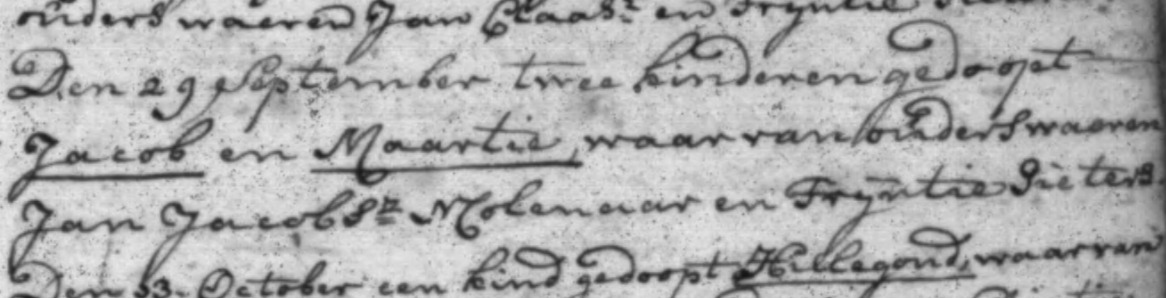 ouders waeren Jan Claasz en Trijntie
Den 29 September twee kinderen gedoopt
Jacob en Maartie waarvan ouders waeren
Jan Jacobsz Molenaar en Trijntie Pieters
Den 13. October een kind gedoopt Hillegond, waarvan